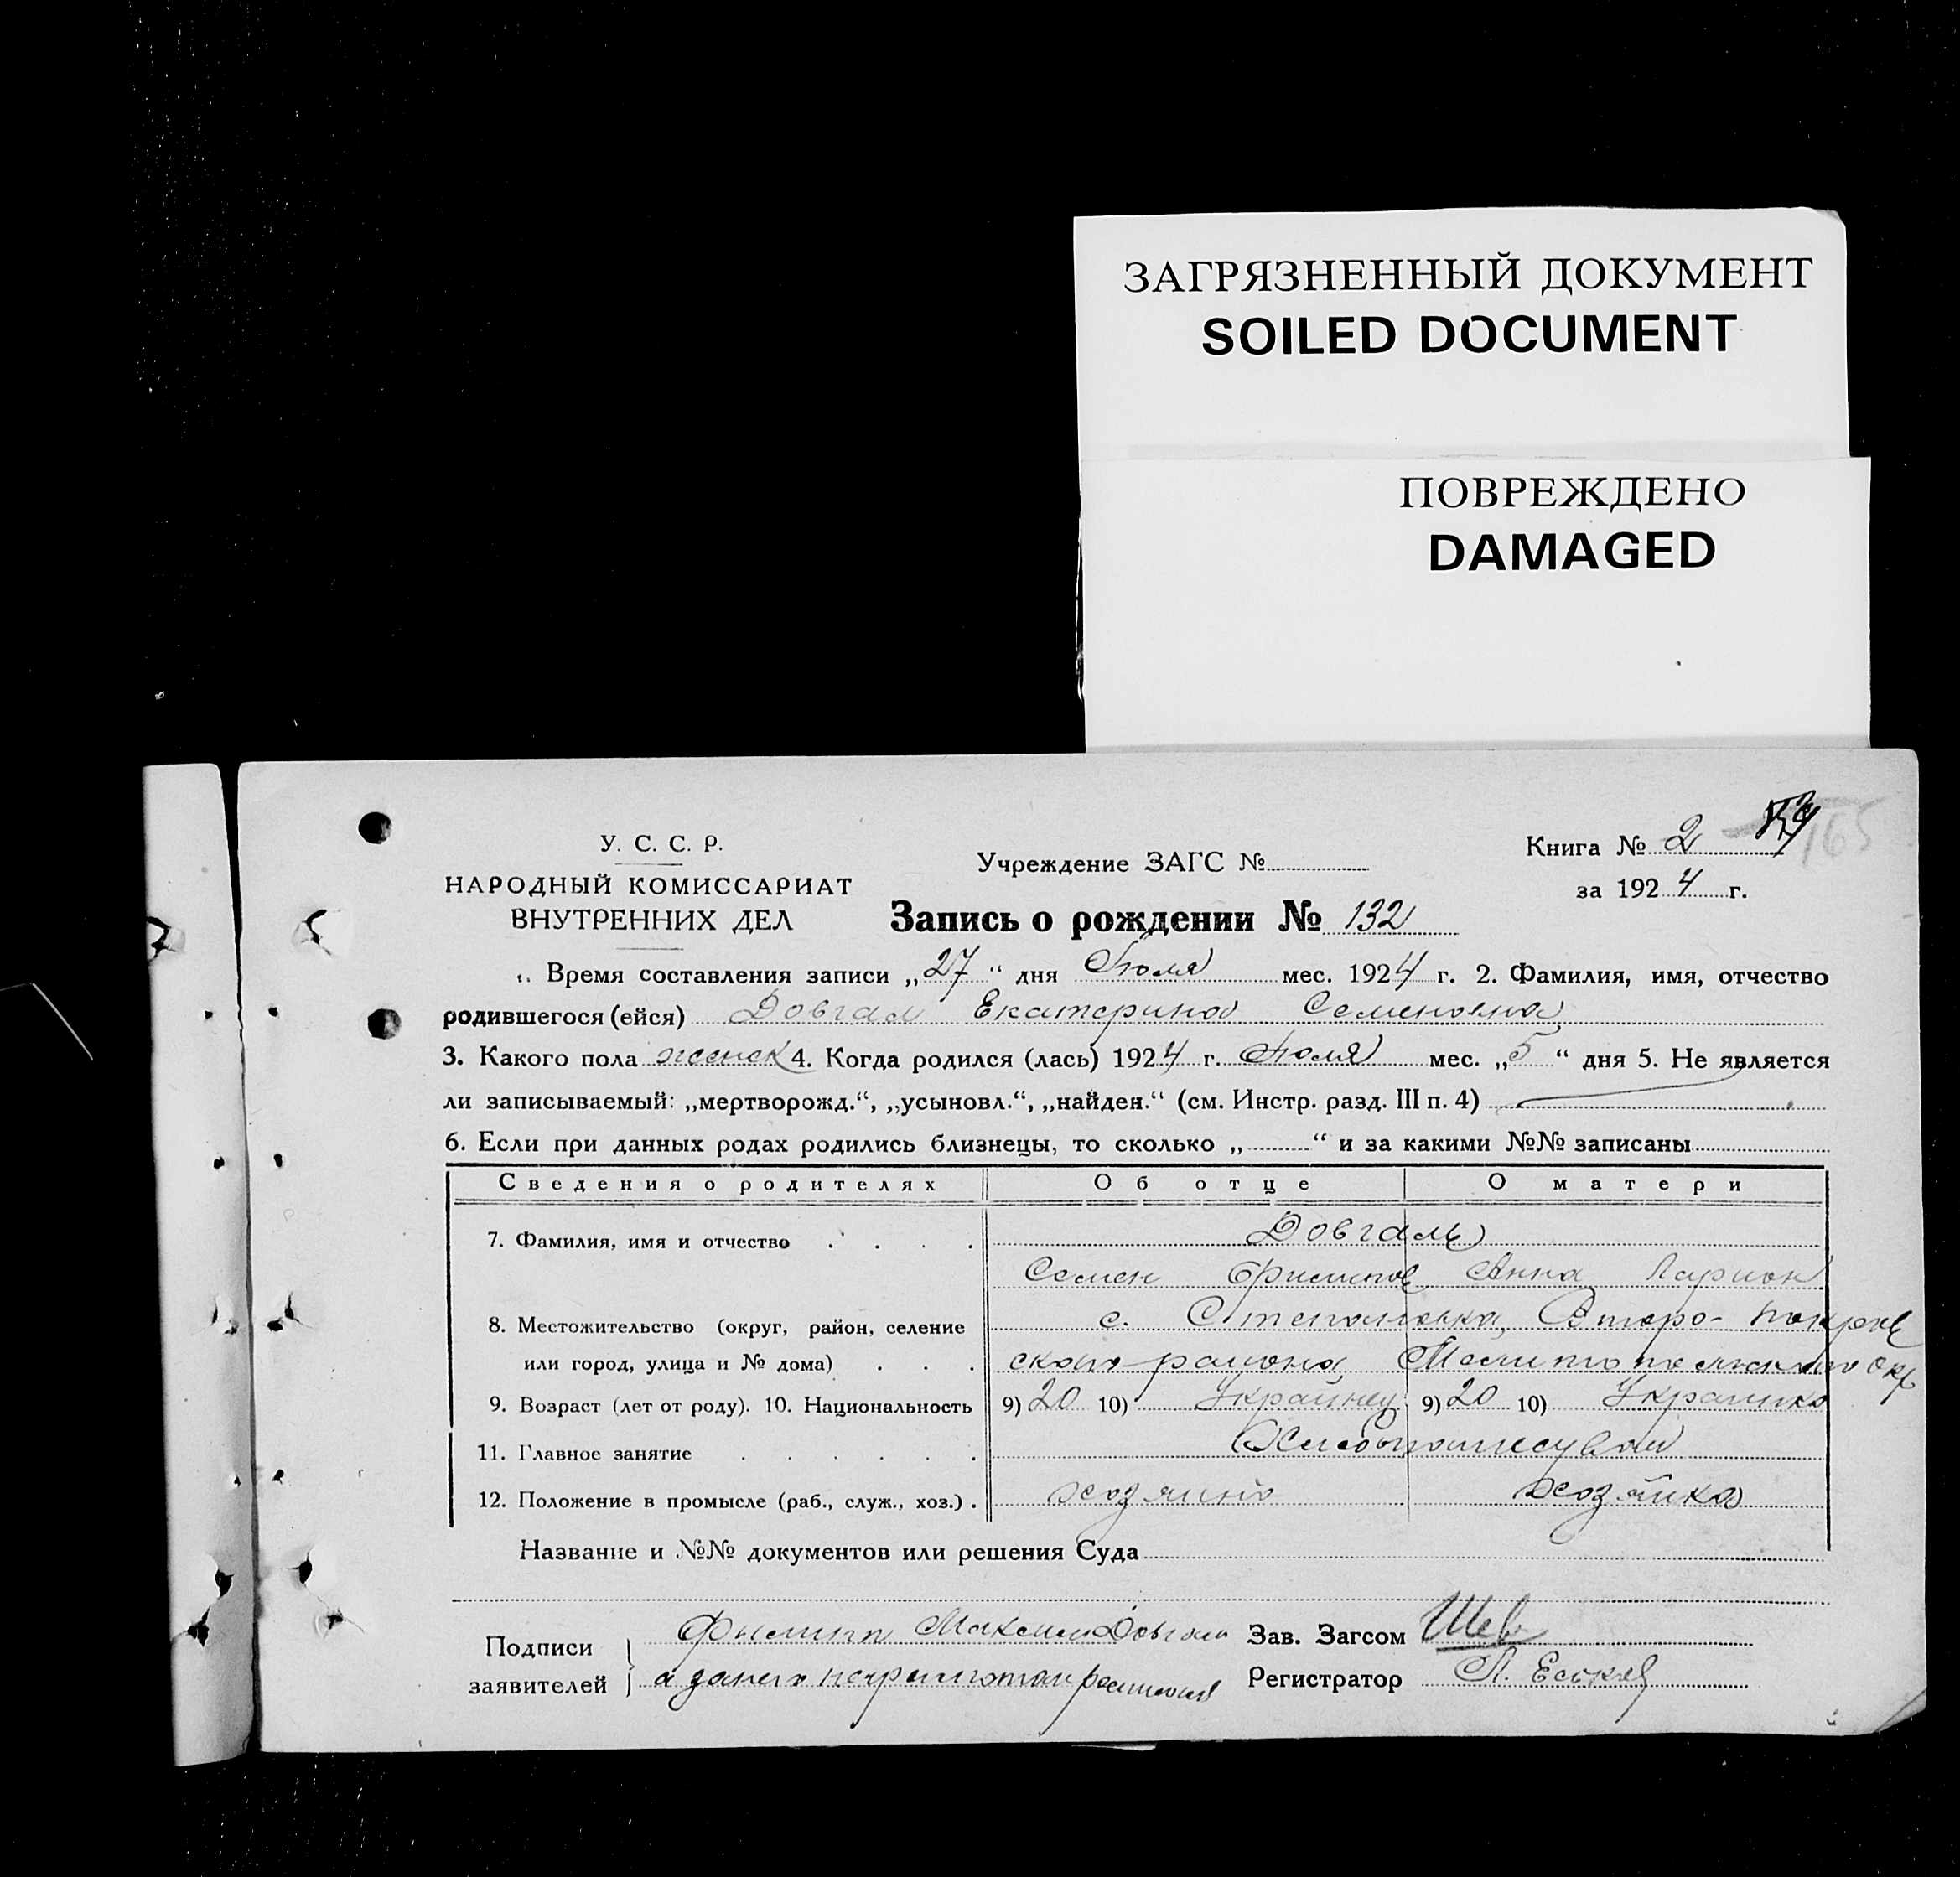 ЗАГРЯЗНЕННЫЙ ДОКУМЕНТ
SOILED DOCUMENT
ПОВРЕЖДЕНО
DAMAGED
165
У. С. С. Р.
НАРОДНЫЙ КОМИССАРИАТ
ВНУТРЕННИХ ДЕЛ
Учреждение ЗАГС №
Книга № 2
за 1924 г.
Запись о рождении № 132
Время составления записи „27“ дня Июля мес. 1924 г. 2. Фамилия, имя, отчество
родившегося (ейся) Довгал Екатерина Семеновна
3. Какого пола женск 4. Когда родился (лась) 1924 г. Июля мес. „5“ дня 5. Не является
ли записываемый: „мертворожд.“, „усыновл.“, „найден.“ (см. Инстр. разд. III п. 4)
6. Если при данных родах родились близнецы, то сколько „ “ и за какими №№ записаны
Сведения о родителях Об отце О матери
7. Фамилия, имя и отчество Довгаль
Семен Филипов Анна Ларион
8. Местожительство (округ, район, селение с. Степановка, Второ-Покров
или город, улица и № дома) ского района, Мелитопольского окр
9. Возраст (лет от роду). 10. Национальность 9) 20 10) Украинец 9) 20 10) Украинка
11. Главное занятие
12. Положение в промысле (раб., служ., хоз.) хозяин хозяйка
Название и №№ документов или решения Суда
Подписи заявителей
Филипп Максим Довгаль Зав. Загсом Шев
а за него неграмотан росписался Регистратор